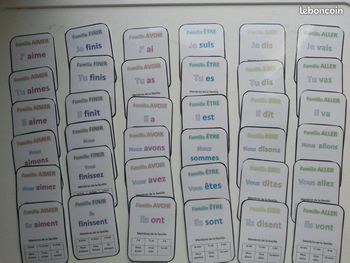 leboncoin
Famille AIMER
J'aime
Famille FINIR
Je finis
Famille AVOIR
J'ai
Famille ÊTRE
Je suis
Famille DIRE
Je dis
Famille ALLER
Je vais
Famille AIMER
Tu aimes
Famille FINIR
Tu finis
Famille AVOIR
Tu as
Famille ÊTRE
Tu es
Famille DIRE
Tu dis
Famille ALLER
Tu vas
Famille AIMER
Il aime
Famille FINIR
Il finit
Famille AVOIR
Il a
Famille ÊTRE
Il est
Famille DIRE
Il dit
Famille ALLER
Il va
Famille AIMER
Nous
aimons
Famille FINIR
Nous
Famille AVOIR
Nous avons
Famille ÊTRE
Nous
sommes
Famille DIRE
Nous disons
Famille ALLER
Nous allons
Famille AIMER
Vous aimez
Famille FINIR
Vous
finissez
Famille AVOIR
Vous avez
Famille ÊTRE
Vous êtes
Famille DIRE
Vous dites
Famille ALLER
Vous allez
Famille AIMER
Ils aiment
Membres de la famille
Famille FINIR
Ils
finissent
Membres de la famille
Famille AVOIR
Ils ont
Membres de la famille
Famille ÊTRE
Ils sont
Membres de la famille
Famille DIRE
Ils disent
Membres de la famille
Famille ALLER
Ils vont
Membres de la famille